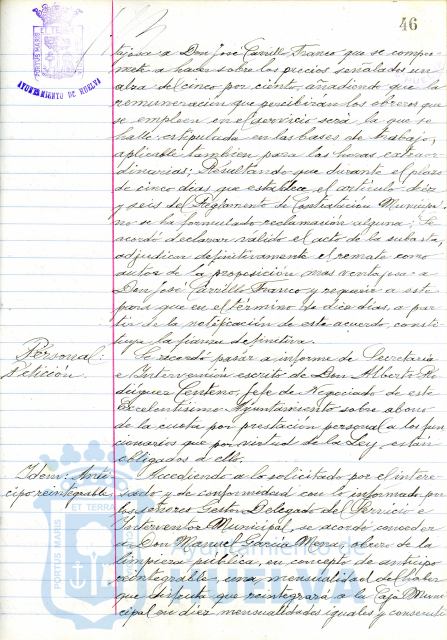 46
PORTUS MARIS
AYUNTAMIENTO DE HUELVA
a Don José Carrillo Franco que se compro-
mete a hacer sobre los precios señalados un
alza de cinco por ciento, añadiendo que la
remuneración que percibirán los obreros que
se empleen en el servicio será la que se
halle estipulada en las bases de trabajo,
aplicable tambien para las horas extraor-
dinarias; Resultando que durante el plazo
de cinco dias que establece el artículo diez
y seis del Reglamento de Contratación Municipal
no se ha formulado reclamación alguna; Se
acordó declarar válido el acto de la subasta,
adjudicar definitivamente el remate como
autor de la proposición mas ventajosa a
Don José Carrillo Franco y requerir a este
para que en el término de diez dias, a par-
tir de la notificación de este acuerdo, consti-
tuya la fianza definitiva.
Personal:
Petición.
Se acordó pasar a informe de Secretaria
e Intervención escrito de Don Alberto Ro-
dríguez Centeno, Jefe de Negociado de este
Excelentísimo Ayuntamiento sobre abono
de la cuota por prestación personal a los fun-
cionarios que por virtud de la Ley, están
obligados a ello.
Idem: Anti-
cipo reintegrable
Accediendo a lo solicitado por el intere-
sado y de conformidad con lo informado por
los señores Gestor Delegado del Servicio e
Interventor Municipal, se acordó conceder
a Don Manuel García Mena, obrero de la
limpieza pública, en concepto de anticipo
reintegrable, una mensualidad del haber
que disfruta que reintegrará a la Caja Muni-
cipal en diez mensualidades iguales y consecuti-
PORTUS MARIS
ET TERRAE
Ayuntamiento de
HUELVA